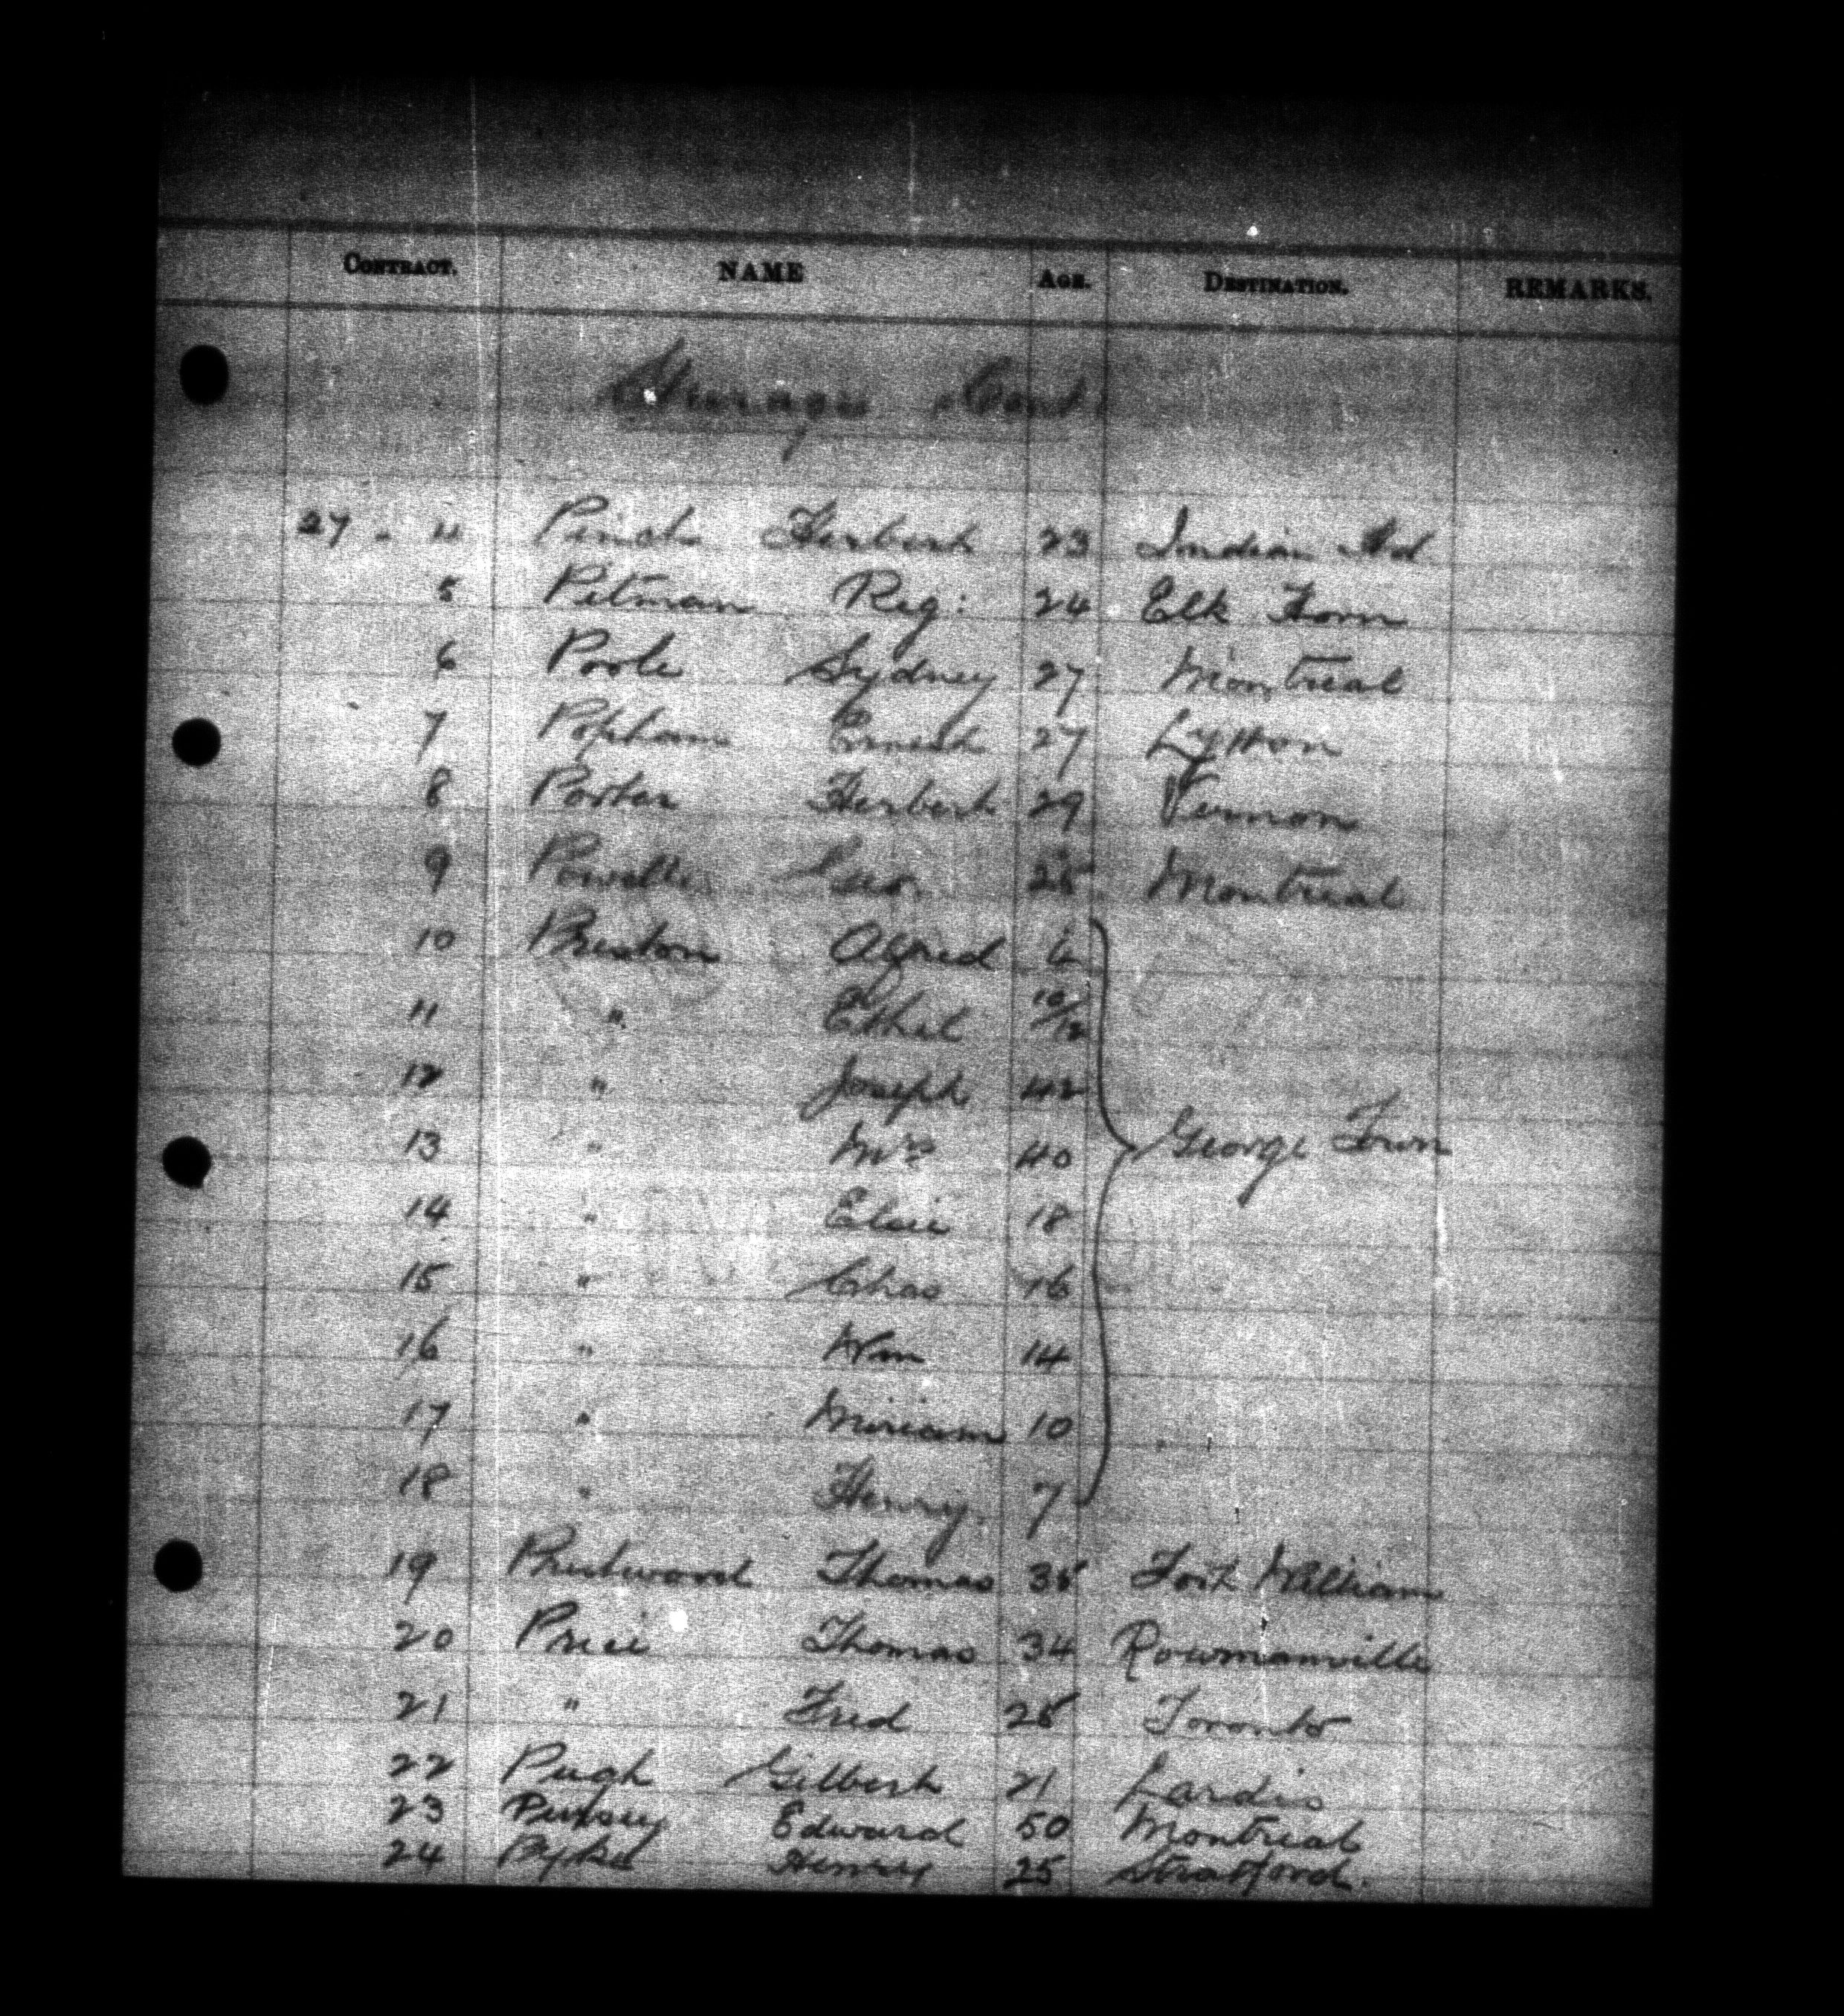 CONTRACT. NAME AGE. DESTINATION. REMARKS.
Steerage Cont.
27 - 4 Pinch Herbert 23 Indian Hd
5 Pitman Reg: 24 Elk Horn
6 Poole Sydney 27 Montreal
7 Popham Ernest 27 Lytton
8 Porter Herbert 29 Vernon
9 Powell Geo. 25 Montreal
10 Preston Alfred 4
11 " Ethel 10/12
12 " Joseph 42
13 " Mrs 40 George Town
14 " Elsie 18
15 " Chas 16
16 " Wm 14
17 " Miriam 10
18 " Henry. 7
19 Thomas 35 Fort William
20 Price Thomas 34 Rowmanville
21 " Fred 25 Toronto
22 Pugh Gilbert 21
23 Edward 50 Montreal
24 Pyke Henry 25 Stratford.